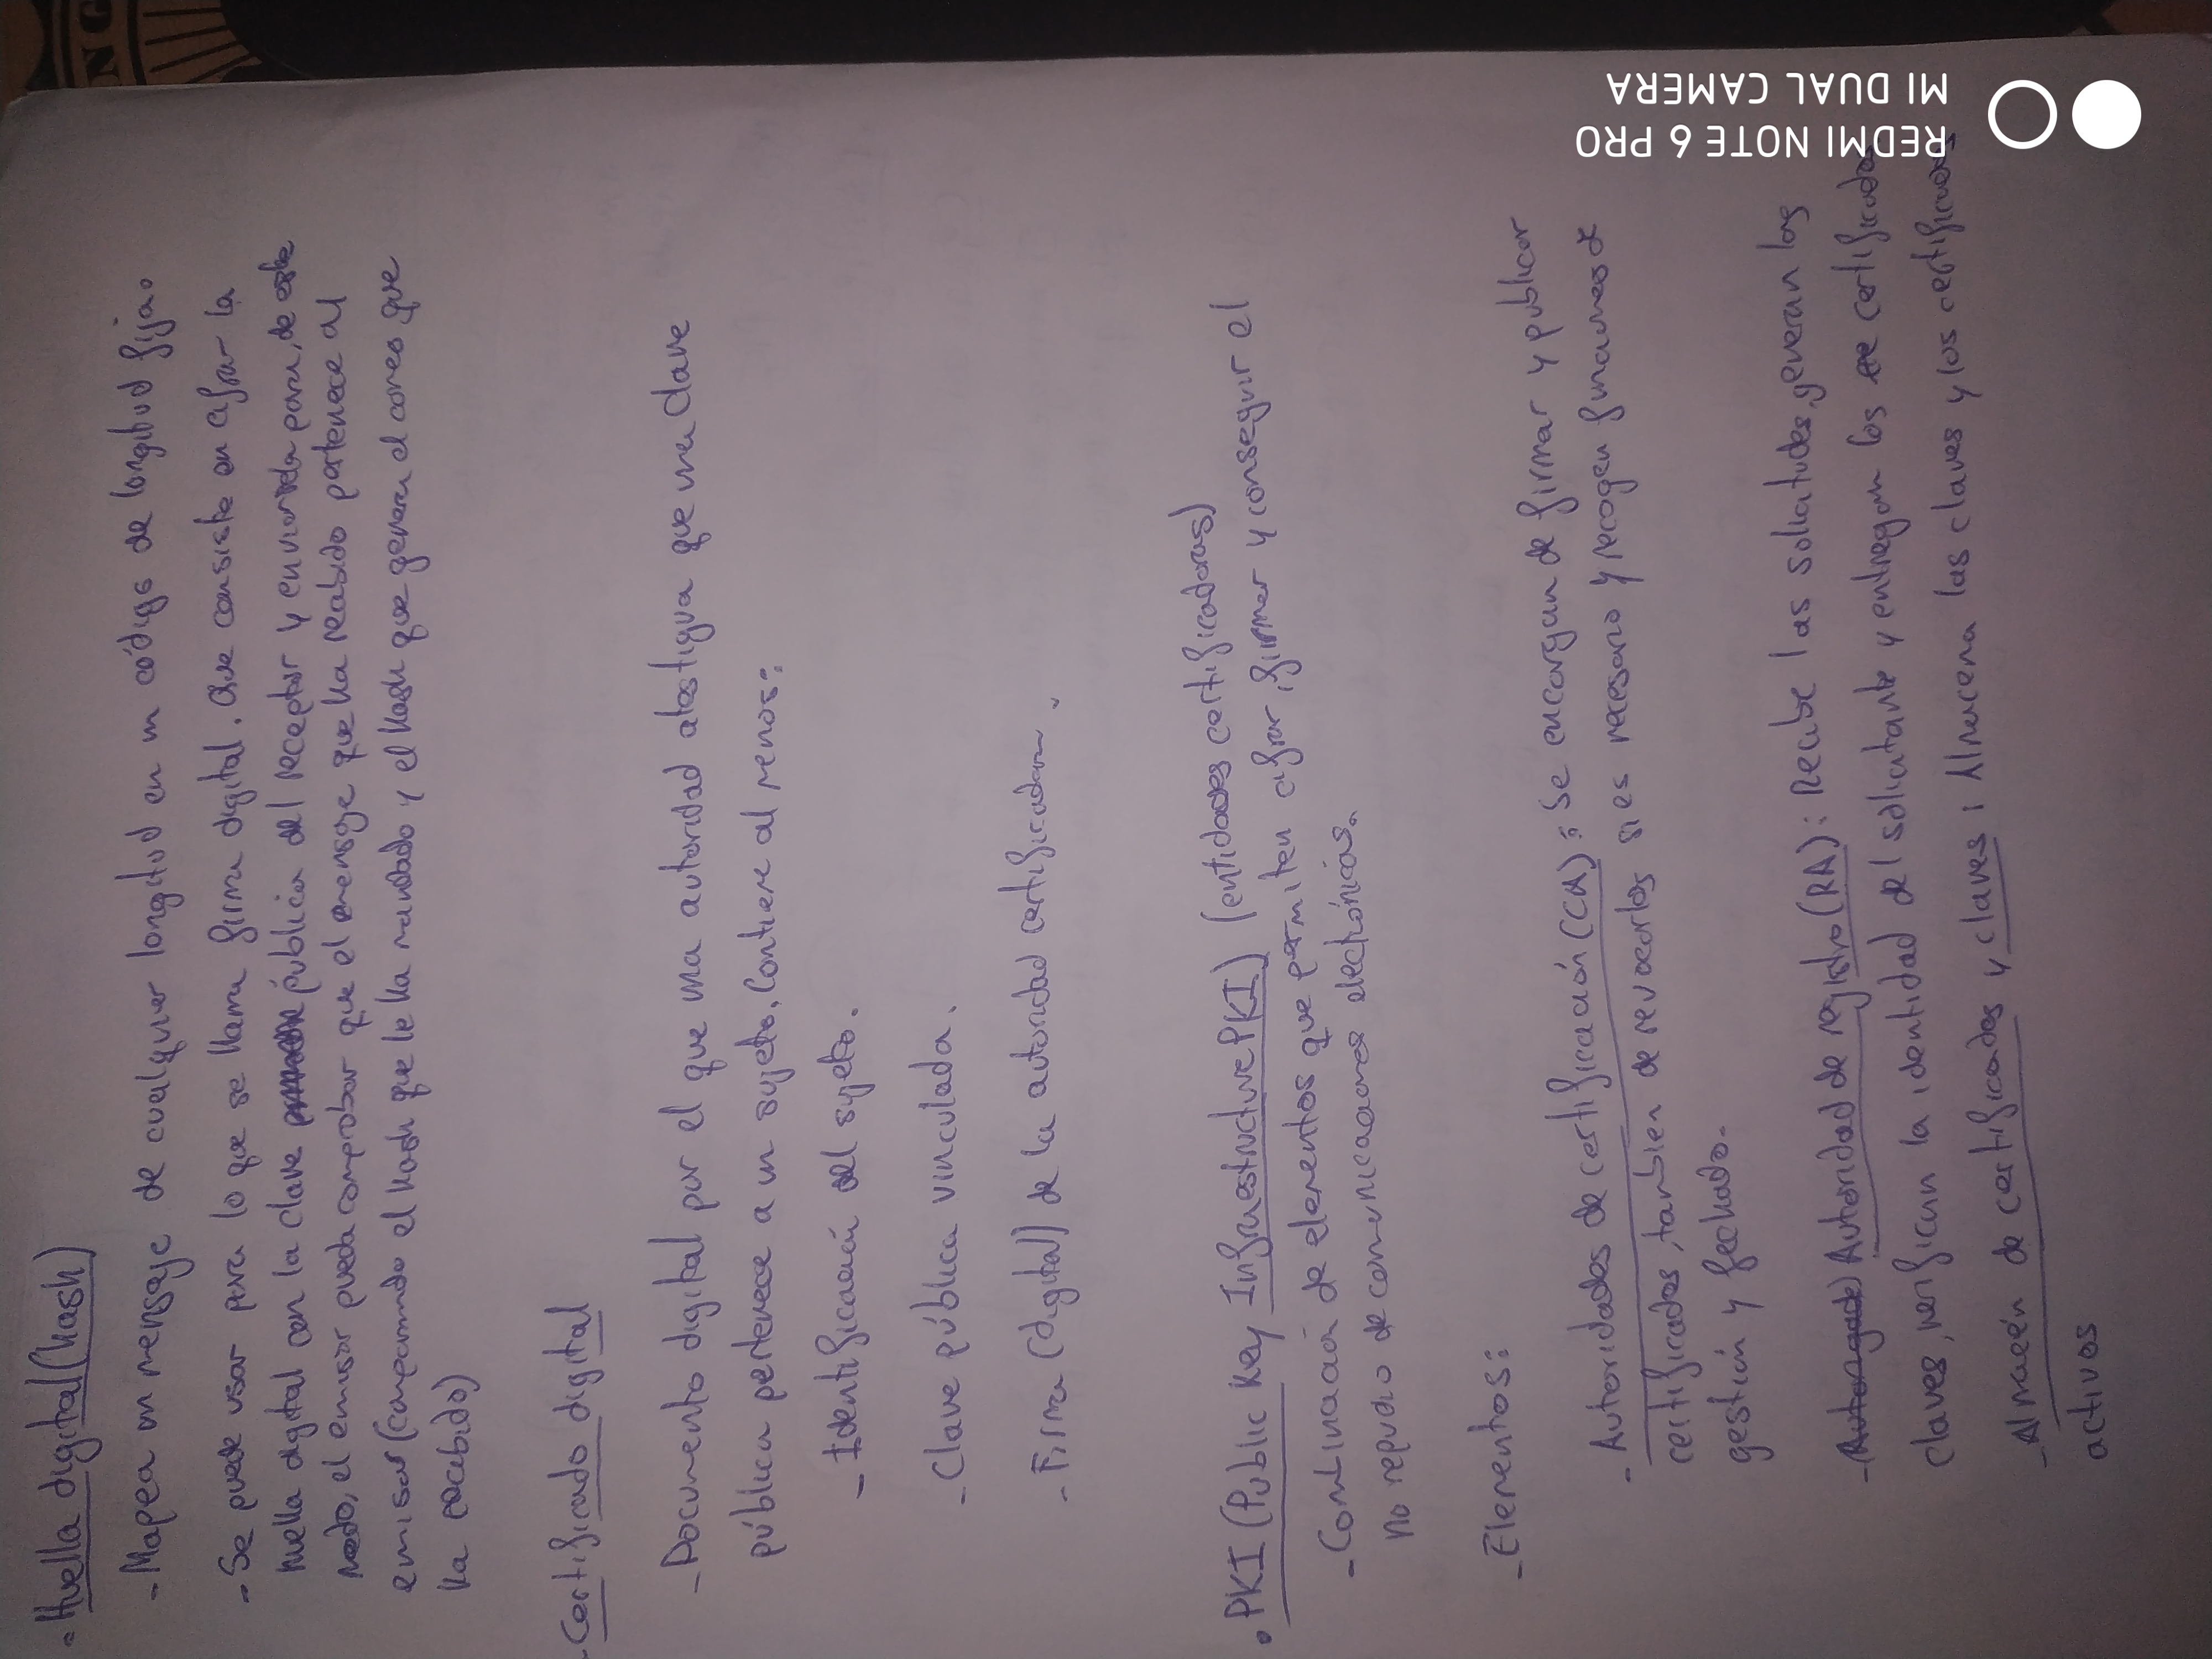 - Huella digital (hash)
- Mapea un mensaje de cualquier longitud en un código de longitud fija.
- Se puede usar para lo que se llama firma digital. Que consiste en cifrar la
huella digital con la clave pública del receptor y enviarla para, de este
modo, el emisor pueda comprobar que el mensaje que ha recibido pertenece al
emisor (comparando el hash que le ha mandado y el hash que genera el correo que
ha recibido)
- Certificado digital
- Documento digital por el que una autoridad atestigua que una clave
pública pertenece a un sujeto. Contiene al menos:
- Identificación del sujeto.
- Clave pública vinculada.
- Firma (digital) de la autoridad certificadora.
• PKI (Public Key Infraestructure PKI) (entidades certificadoras)
- Combinación de elementos que permiten cifrar, firmar y conseguir el
no repudio de comunicaciones electrónicas.
- Elementos:
- Autoridades de certificación (CA): Se encargan de firmar y publicar
certificados, tambien de revocarlos si es necesario y recogen funciones de
gestión y fechado.
- Autoridad de registro (RA): Recibe las solicitudes, generan las
claves, verifican la identidad del solicitante y entregan los certificados
- Almacén de certificados y claves: Almacena las claves y los certificados
activos
REDMI NOTE 6 PRO
MI DUAL CAMERA
NG